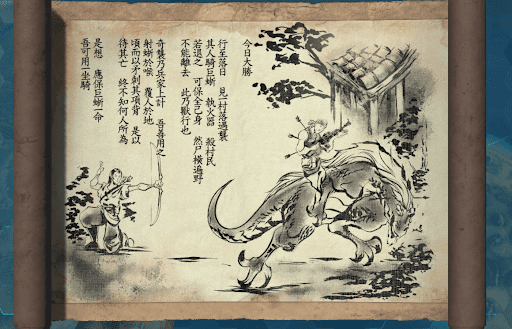 今日大勝
行至落日　見一村落遇襲
其人騎巨蜥　執火器　殺村民
若退之　可保全己身　然尸橫遍野
不能離去　此乃獸行也
奇襲乃兵家上計　吾善用之
射蜥於喉　覆人於地
頃而以矛刺其項背　是以
待其亡　終不知何人所為
是想　應保巨蜥一命
吾可用一坐騎